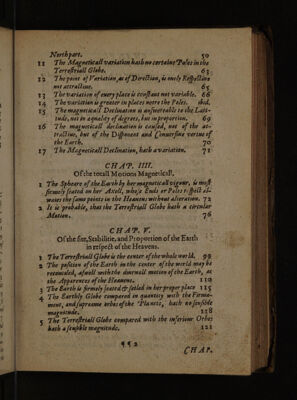 North part. 50
11 The Magneticall variation hath no certaine Poles in the
Terrestriall Globe. 63
12 The point of Variation, as of Direction, is onely Respective
not attractive. 65
13 The variation of every place is constant not variable. 66
14 The variation is greater in places neere the Poles. ibid.
15 The magneticall Declination is answerable to the Lati-
tude, not in æquality of degrees, but in proportion. 69
16 The magneticall declination is caused, not of the at-
tractive, but of the Disponent and Conversive vertue of
the Earth. 70
17 The Magneticall Declination, hath a variation. 71
CHAP. IIII.
Of the totall Motions Magneticall.
1 The Spheare of the Earth by her magneticall vigour, is most
firmely seated on her Axell, whose Ends or Poles respect al-
waies the same points in the Heavens without alteration. 72
2 It is probable, that the Terrestriall Globe hath a circular
Motion. 76
CHAP. V.
Of the site, Stabilitie, and Proportion of the Earth
in respect of the Heavens.
1 The Terrestriall Globe is the center of the whole world. 99
2 The position of the Earth in the center of the world may be
reconciled, aswell with the diurnall motion of the Earth, as
the Apparences of the Heavens. 110
3 The Earth is firmely seated & setled in her proper place 115
4 The Earthly Globe compared in quantity with the Firma-
ment, and supreame orbes of the Planets, hath no sensible
magnitude. 118
5 The Terrestriall Globe compared with the inferiour Orbes
hath a sensible magnitude. 121
¶¶2
CHAP.